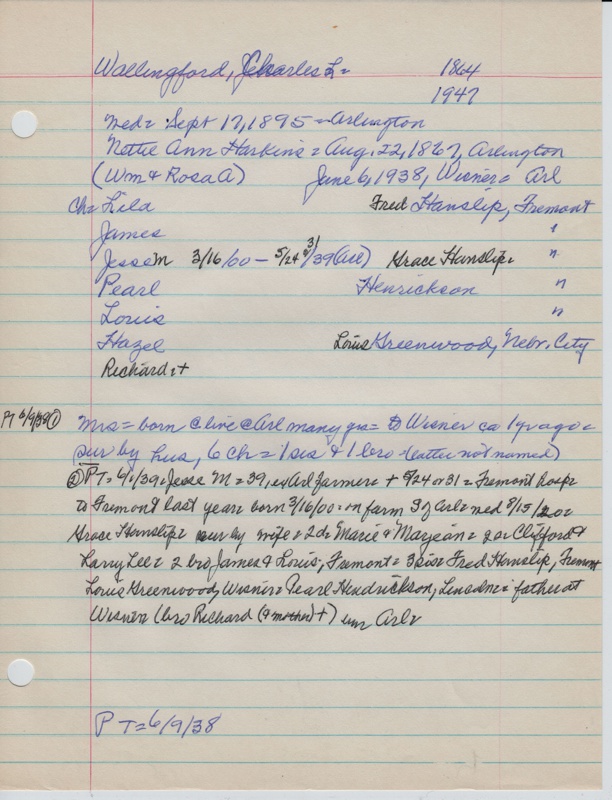 Wallingford, Charles L= 1864
1947
med= Sept 17, 1895 = Arlington
Nettie Ann Harkins = Aug. 22, 1867, Arlington
(Wm & Rosa A) June 6, 1938, Wisner = Arl
Ch= Lila Fred Hanslip, Fremont
James "
Jesse M 3/16/00 – 5/24 or 31/39 (Arl) Grace Hanslip= "
Pearl Henrickson "
Louis "
Hazel Louis Greenwood, Nebr. City
Richard = +
PT 6/9/38 ① Mrs= born & live @ Arl many yrs = to Wisner ca 1 yr ago =
sur by hus, 6 ch = 1 sis & 1 bro (latter not named)
② PT= 6/1/39= Jesse M = 39, ex Arl farmer = + 5/24 or 31 = Fremont hosp=
to Fremont last year= born 3/16/00= on farm S of Arl= med 8/15/20=
Grace Hanslip= sur by wife = 2 d= Marie & Marjean = 2 s= Clifford &
Larry Lee = 2 bro James & Louis, Fremont = 3 sis= Fred Hanslip, Fremont
Louis Greenwood, Wisner= Pearl Hendrickson, Lincoln = father at
Wisner (bro Richard (& mother) +) = Arl=
PT=6/9/38